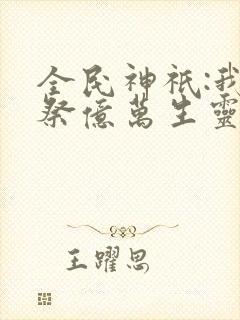 全民神祇:我
祭億萬生靈
王躍思